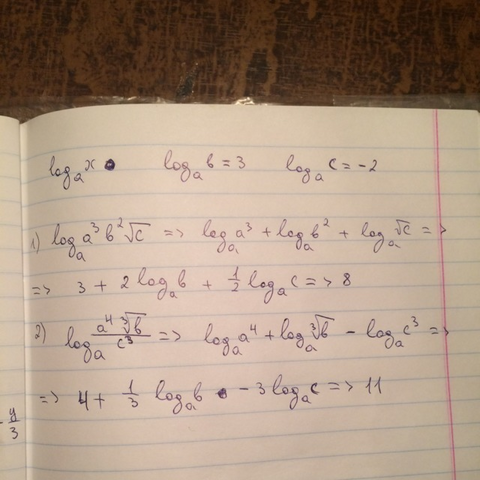 logₐ x logₐ b = 3 logₐ c = -2
1) logₐ a³ b² √c => logₐ a³ + logₐ b² + logₐ √c =>
=> 3 + 2 logₐ b + 1/2 logₐ c => 8
2) logₐ (a⁴ ∛b)/(c³) => logₐ a⁴ + logₐ ∛b - logₐ c³ =>
=> 4 + 1/3 logₐ b - 3 logₐ c => 11
- y/3